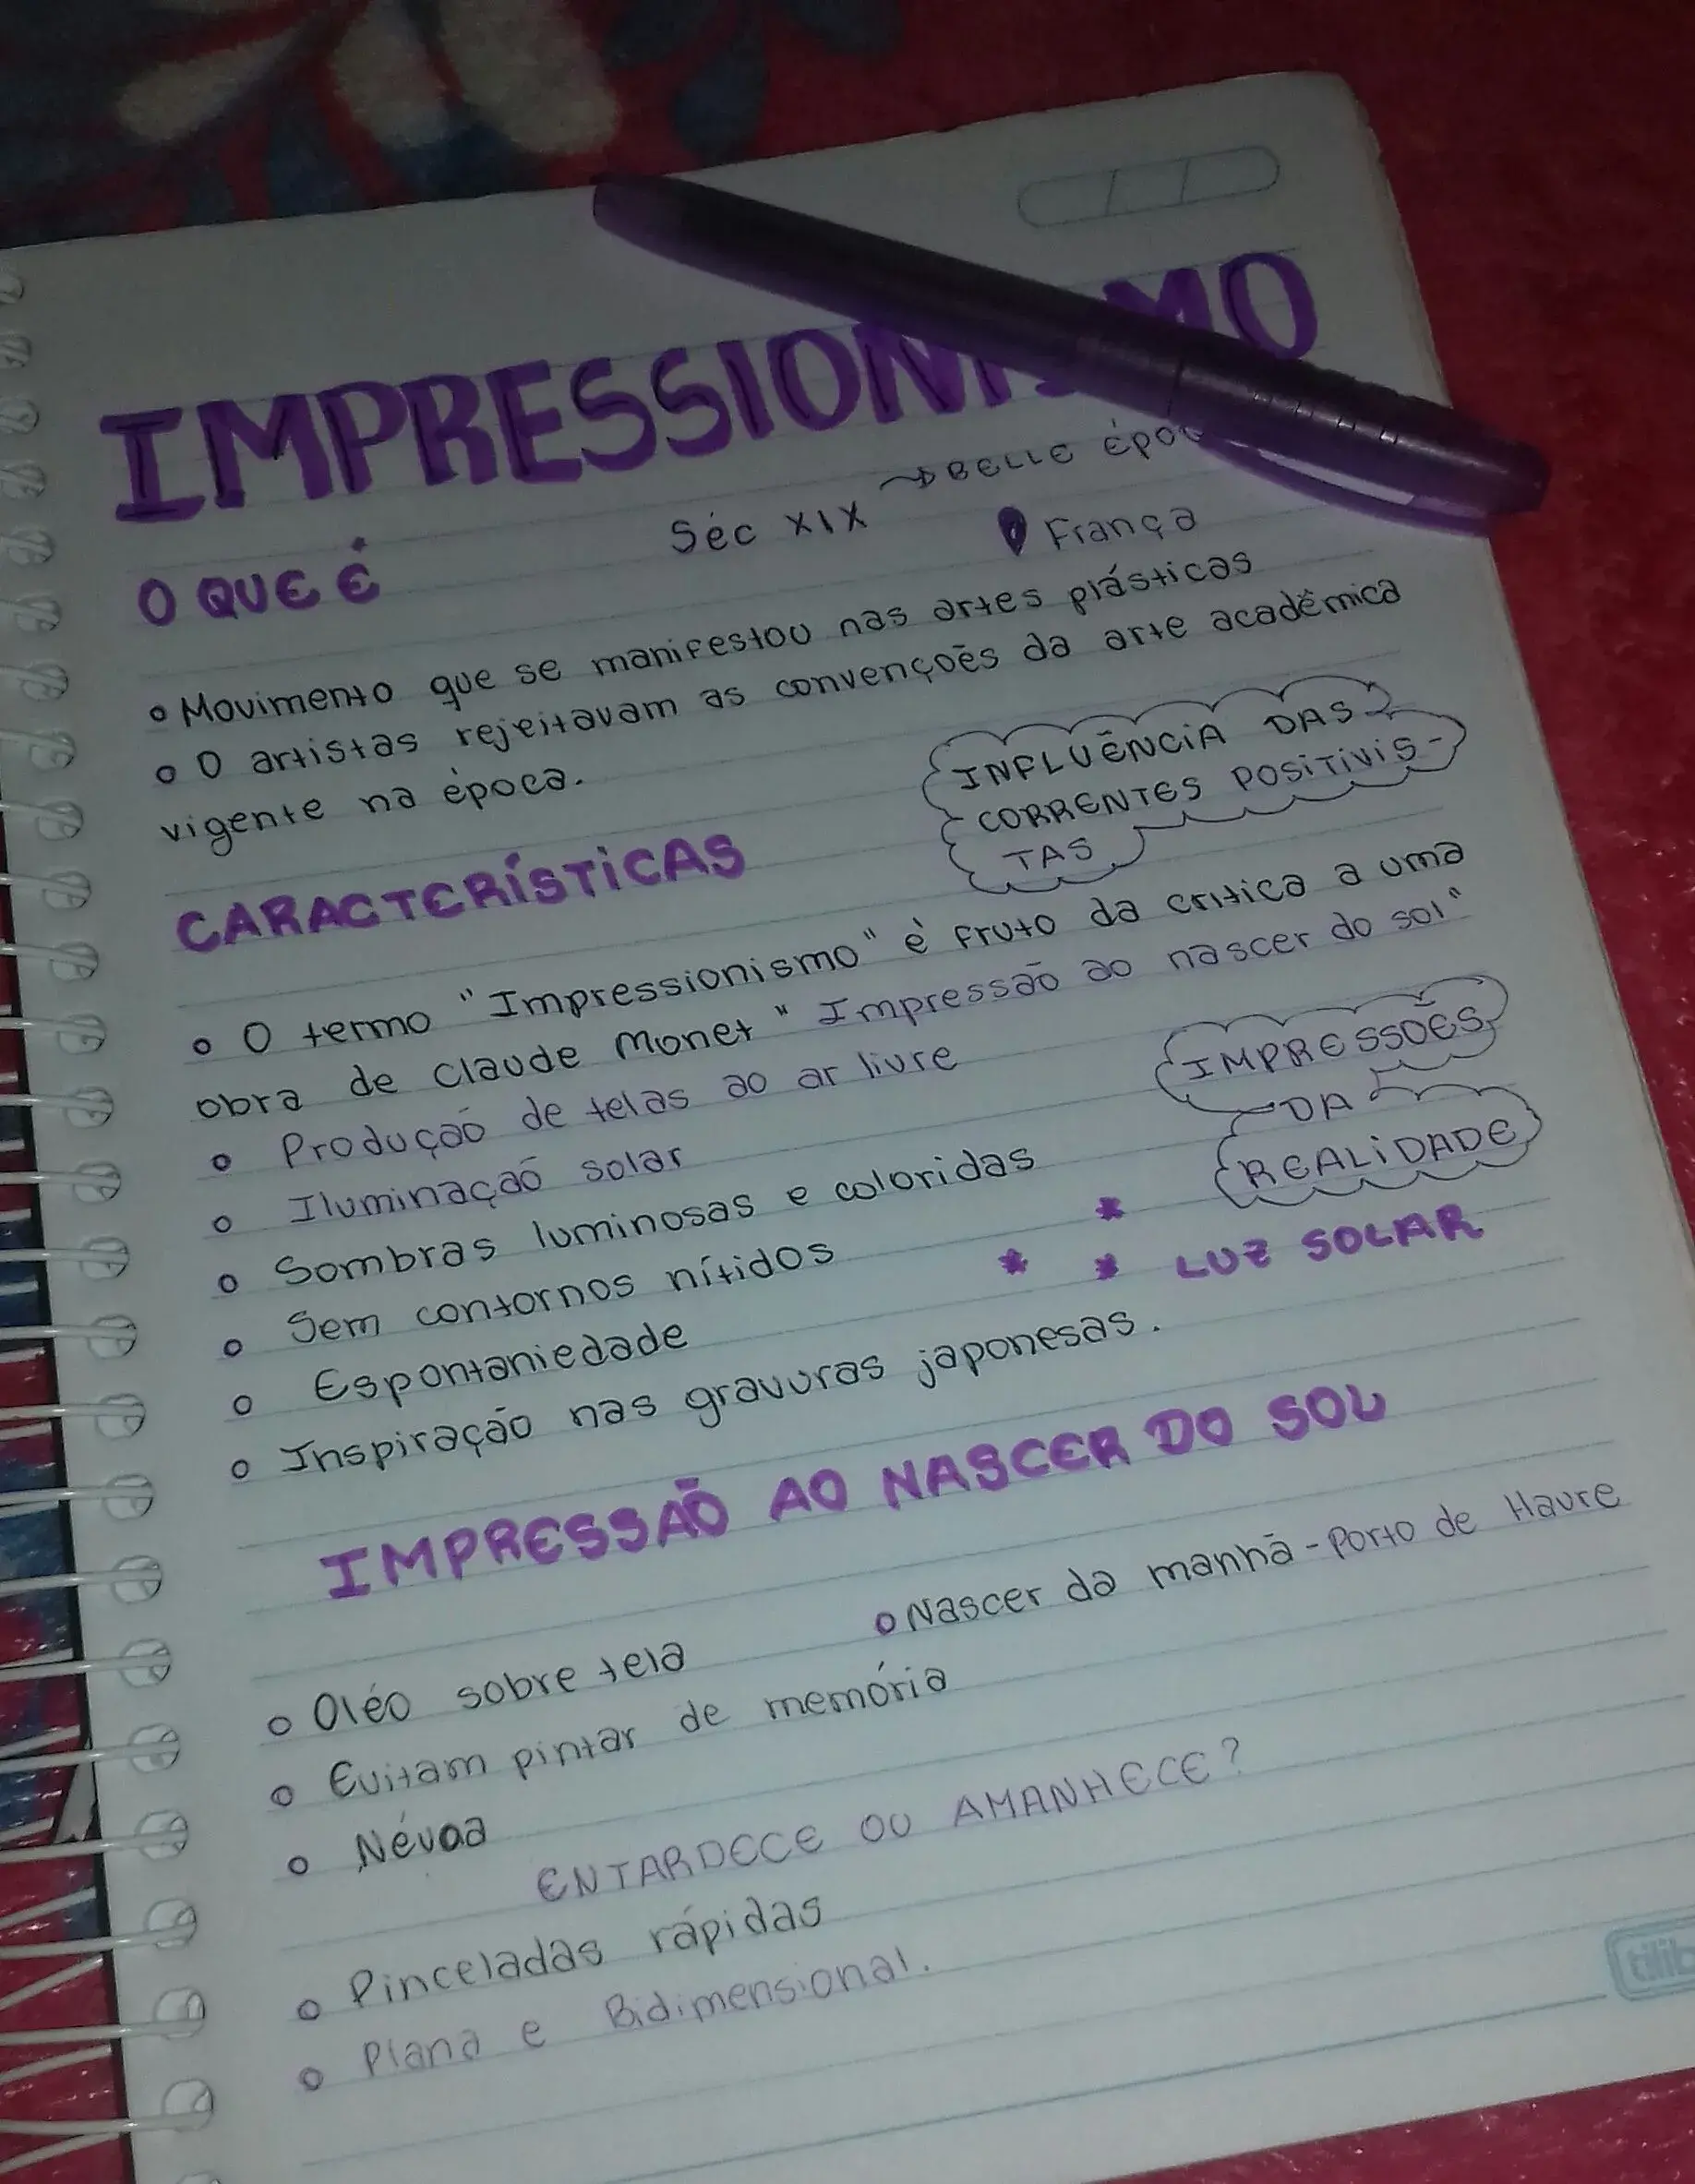 IMPRESSIONISMO
Séc XIX → BELLE épo
O QUE É
França
• Movimento que se manifestou nas artes plásticas
• O artistas rejeitavam as convençoẽs da arte acadêmica
vigente na época.
INFLUÊNCIA DAS
CORRENTES POSITIVIS-
TAS
CARACTERÍSTICAS
• O termo "Impressionismo" é fruto da critica a uma
obra de Claude Monet "Impressaõ ao nascer do sol"
• Produçaõ de telas ao ar livre
IMPRESSOẼS
DA
REALIDADE
• Iluminaçaõ solar
• Sombras luminosas e coloridas
• Sem contornos nítidos
* * * LUZ SOLAR
• Espontaniedade
• Inspiração nas gravuras japonesas.
IMPRESSAÕ AO NASCER DO SOL
• Oléo sobre tela
• Nascer da manhã - Porto de Havre
• Evitam pintar de memória
• Névoa
ENTARDECE OU AMANHECE?
• Pinceladas rápidas
• Plana e Bidimensional.